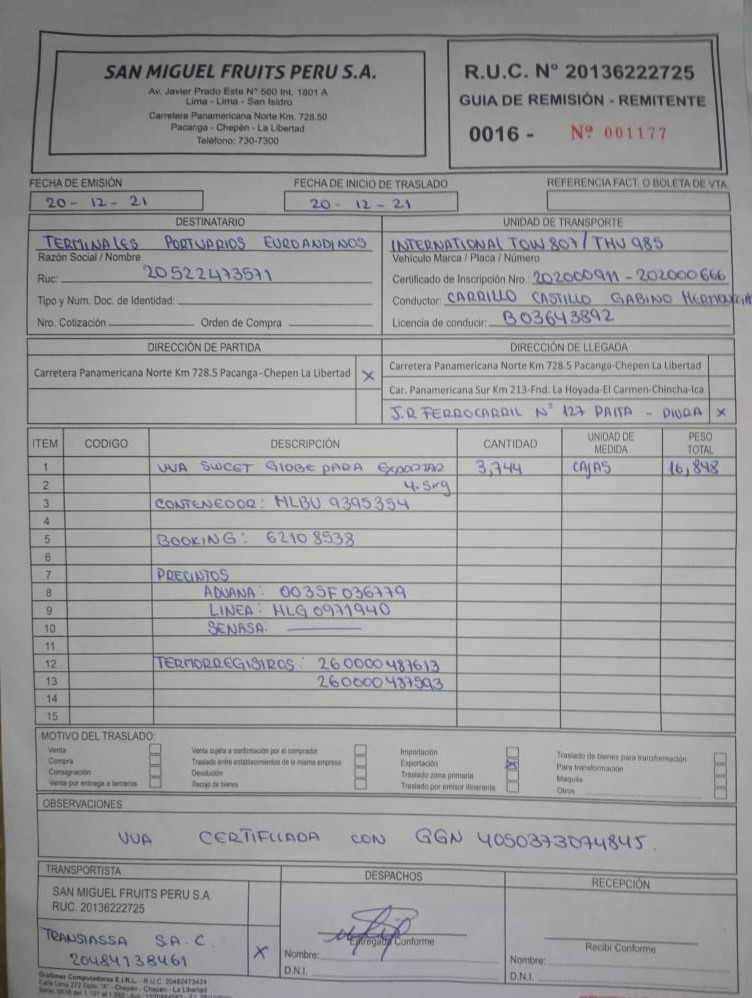 SAN MIGUEL FRUITS PERU S.A.
Av. Javier Prado Este N° 560 Int. 1801 A
Lima - Lima - San Isidro
Carretera Panamericana Norte Km. 728.50
Pacanga - Chepén - La Libertad
Teléfono: 730-7300
R.U.C. Nº 20136222725
GUIA DE REMISIÓN - REMITENTE
0016 - Nº 001177
FECHA DE EMISIÓN FECHA DE INICIO DE TRASLADO REFERENCIA FACT. O BOLETA DE VTA.
20 - 12 - 21 20 - 12 - 21
DESTINATARIO
TERMINALES PORTUARIOS EUROANDINOS
Razón Social / Nombre
Ruc: 20522473571
Tipo y Num. Doc. de Identidad:
Nro. Cotización Orden de Compra
UNIDAD DE TRANSPORTE
INTERNATIONAL TOW 807 / THU 985
Vehículo Marca / Placa / Número
Certificado de Inscripción Nro.: 202000911 - 202000666
Conductor: CARRILLO CASTILLO GABINO
Licencia de conducir: B03643892
DIRECCIÓN DE PARTIDA
Carretera Panamericana Norte Km 728.5 Pacanga-Chepen La Libertad X
DIRECCIÓN DE LLEGADA
Carretera Panamericana Norte Km 728.5 Pacanga-Chepen La Libertad
Car. Panamericana Sur Km 213-Fnd. La Hoyada-El Carmen-Chincha-Ica
J.R FERROCARRIL N° 127 PAITA - PIURA X
ITEM CODIGO DESCRIPCIÓN CANTIDAD UNIDAD DE MEDIDA PESO TOTAL
1 UVA SWEET GLOBE PARA EXPORTAR 3,744 CAJAS 16,848
2 4.5kg
3 CONTENEDOR: MLBU 9395354
4
5 BOOKING: 62108538
6
7 PRECINTOS
8 ADUANA: 0035F036779
9 LINEA: MLG0971940
10 SENASA:
11
12 TERMORREGISTROS: 260000487613
13 260000437593
14
15
MOTIVO DEL TRASLADO:
Venta
Compra
Consignación
Venta por entrega a terceros
Venta sujeta a confirmación por el comprador
Traslado entre establecimientos de la misma empresa
Devolución
Recojo de bienes
Importación
Exportación X
Traslado zona primaria
Traslado por emisor itinerante
Traslado de bienes para transformación
Para transformación
Maquila
Otros
OBSERVACIONES
UVA CERTIFICADA CON GGN 4050373074845.
TRANSPORTISTA
SAN MIGUEL FRUITS PERU S.A.
RUC. 20136222725
TRANSIASSA S.A.C. X
20484738461
DESPACHOS
Entregado Conforme
Nombre:
D.N.I.
RECEPCIÓN
Recibí Conforme
Nombre:
D.N.I.
Grafimex Computadoras E.I.R.L. - R.U.C. 20482473424